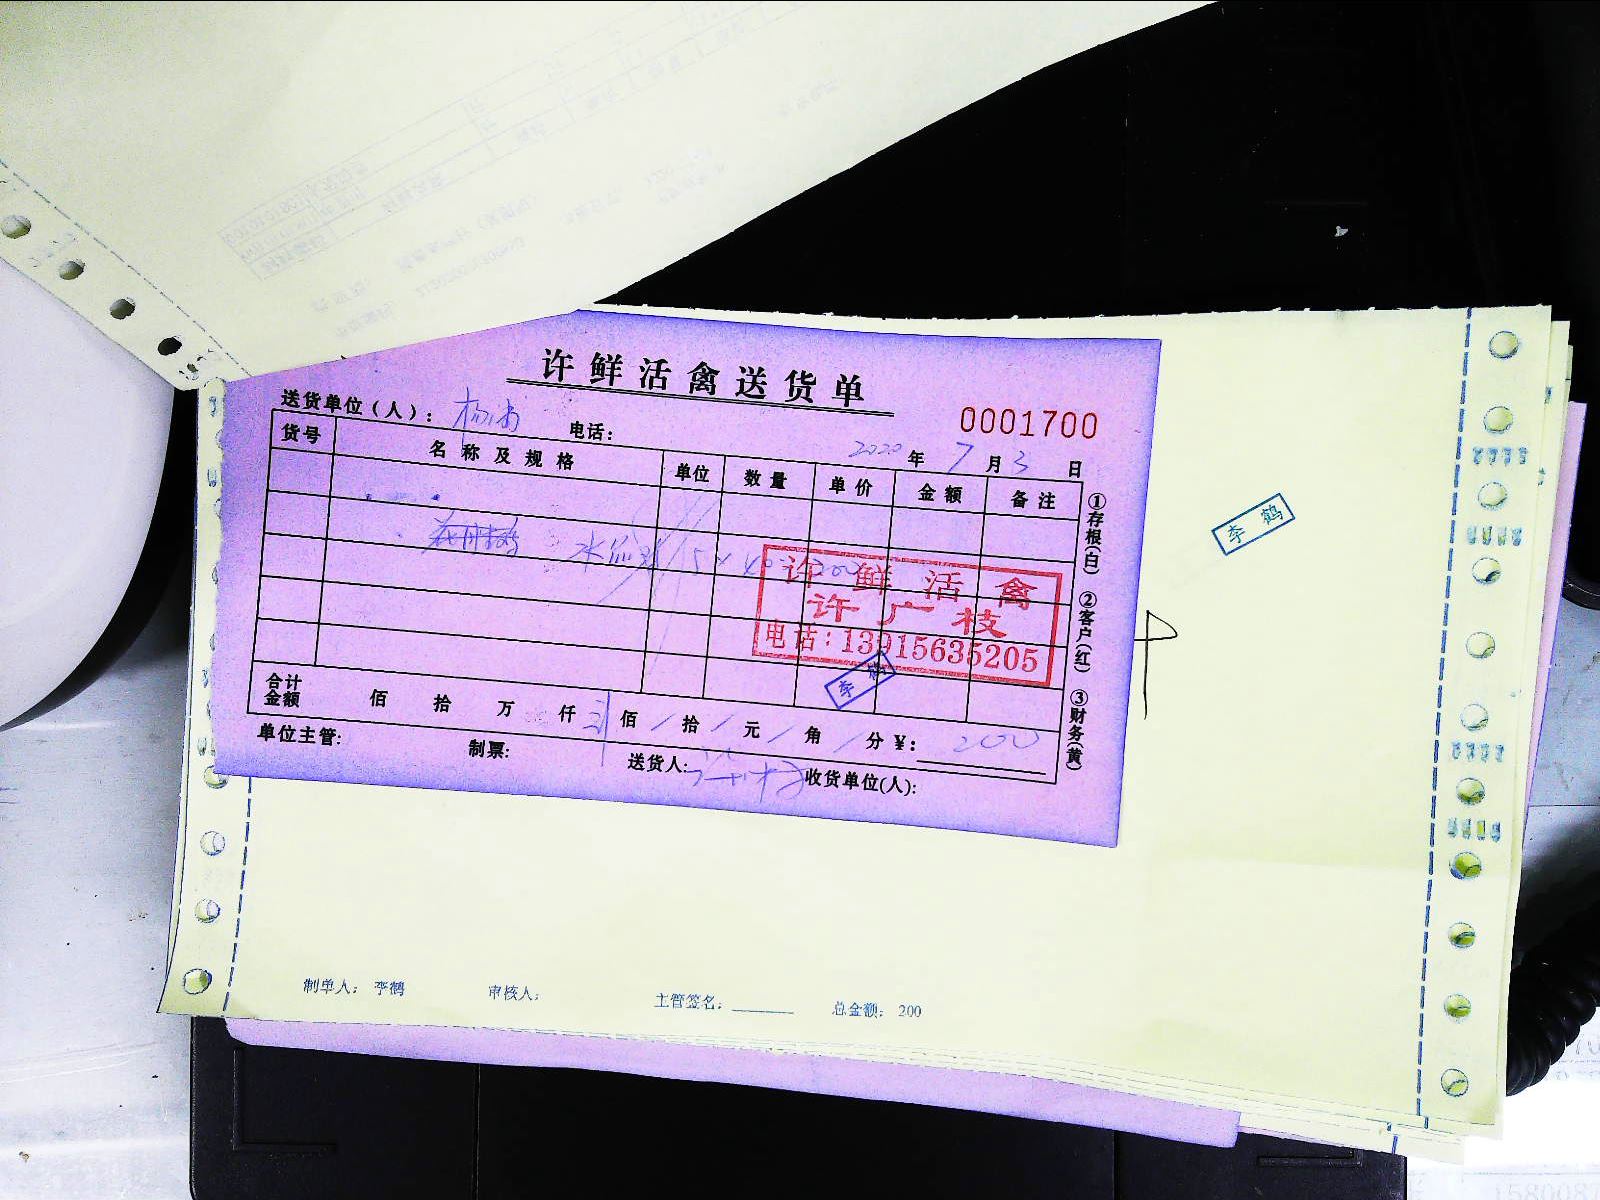 许鲜活禽送货单
送货单位(人): 电话:
0001700
2020年7月3日
货号 名称及规格 单位 数量 单价 金额 备注
5×40 200
许鲜活禽
许广枝
电话:13915635205
李鹤
合计金额 佰 拾 万 仟 佰 拾 元 角 分 ¥: 200
单位主管: 制票: 送货人: 收货单位(人):
①存根(白) ②客户(红) ③财务(黄)
李鹤
制单人: 李鹤 审核人: 主管签名: 总金额: 200